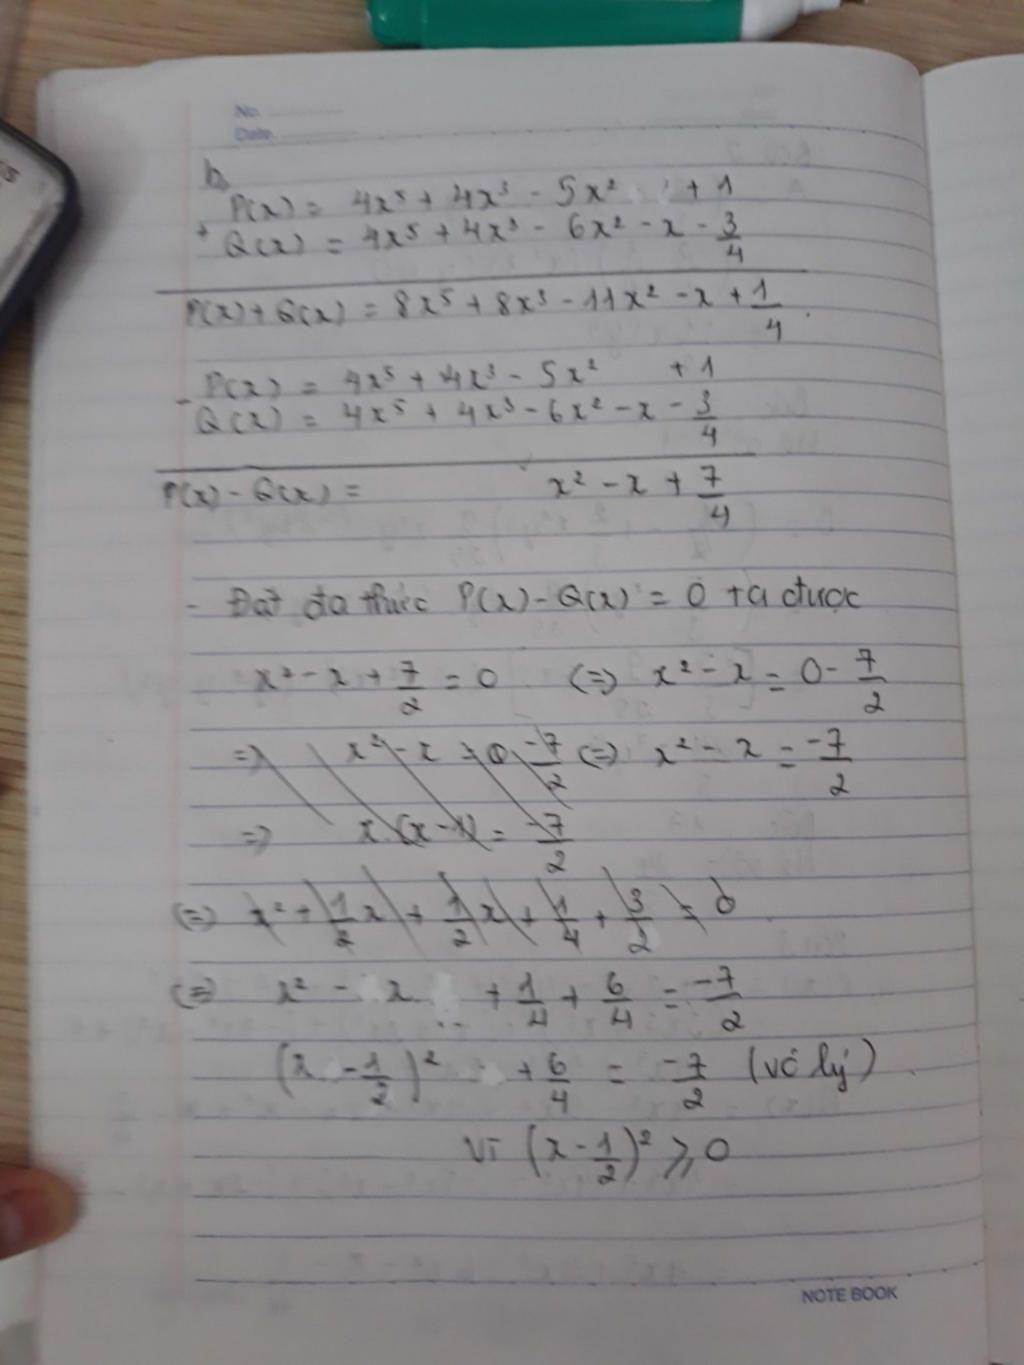 No.
Date.
b,
P(x) = 4x⁵ + 4x³ - 5x² + 1
+
Q(x) = 4x⁵ + 4x³ - 6x² - x - 3/4
P(x) + Q(x) = 8x⁵ + 8x³ - 11x² - x + 1/4
P(x) = 4x⁵ + 4x³ - 5x² + 1
-
Q(x) = 4x⁵ + 4x³ - 6x² - x - 3/4
P(x) - Q(x) = x² - x + 7/4
- Đặt đa thức P(x) - Q(x) = 0 ta được
x² - x + 7/2 = 0 (=) x² - x = 0 - 7/2
=) x² - x = 0 - 7/2 (=) x² - x = -7/2
=) x (x - 1) = -7/2
(=) x² + 1/2 x + 1/2 x + 1/4 + 3/2 = 0
(=) x² - x + 1/4 + 6/4 = -7/2
(x - 1/2)² + 6/4 = -7/2 (vô lý)
Vì (x - 1/2)² ⩾ 0
NOTE BOOK